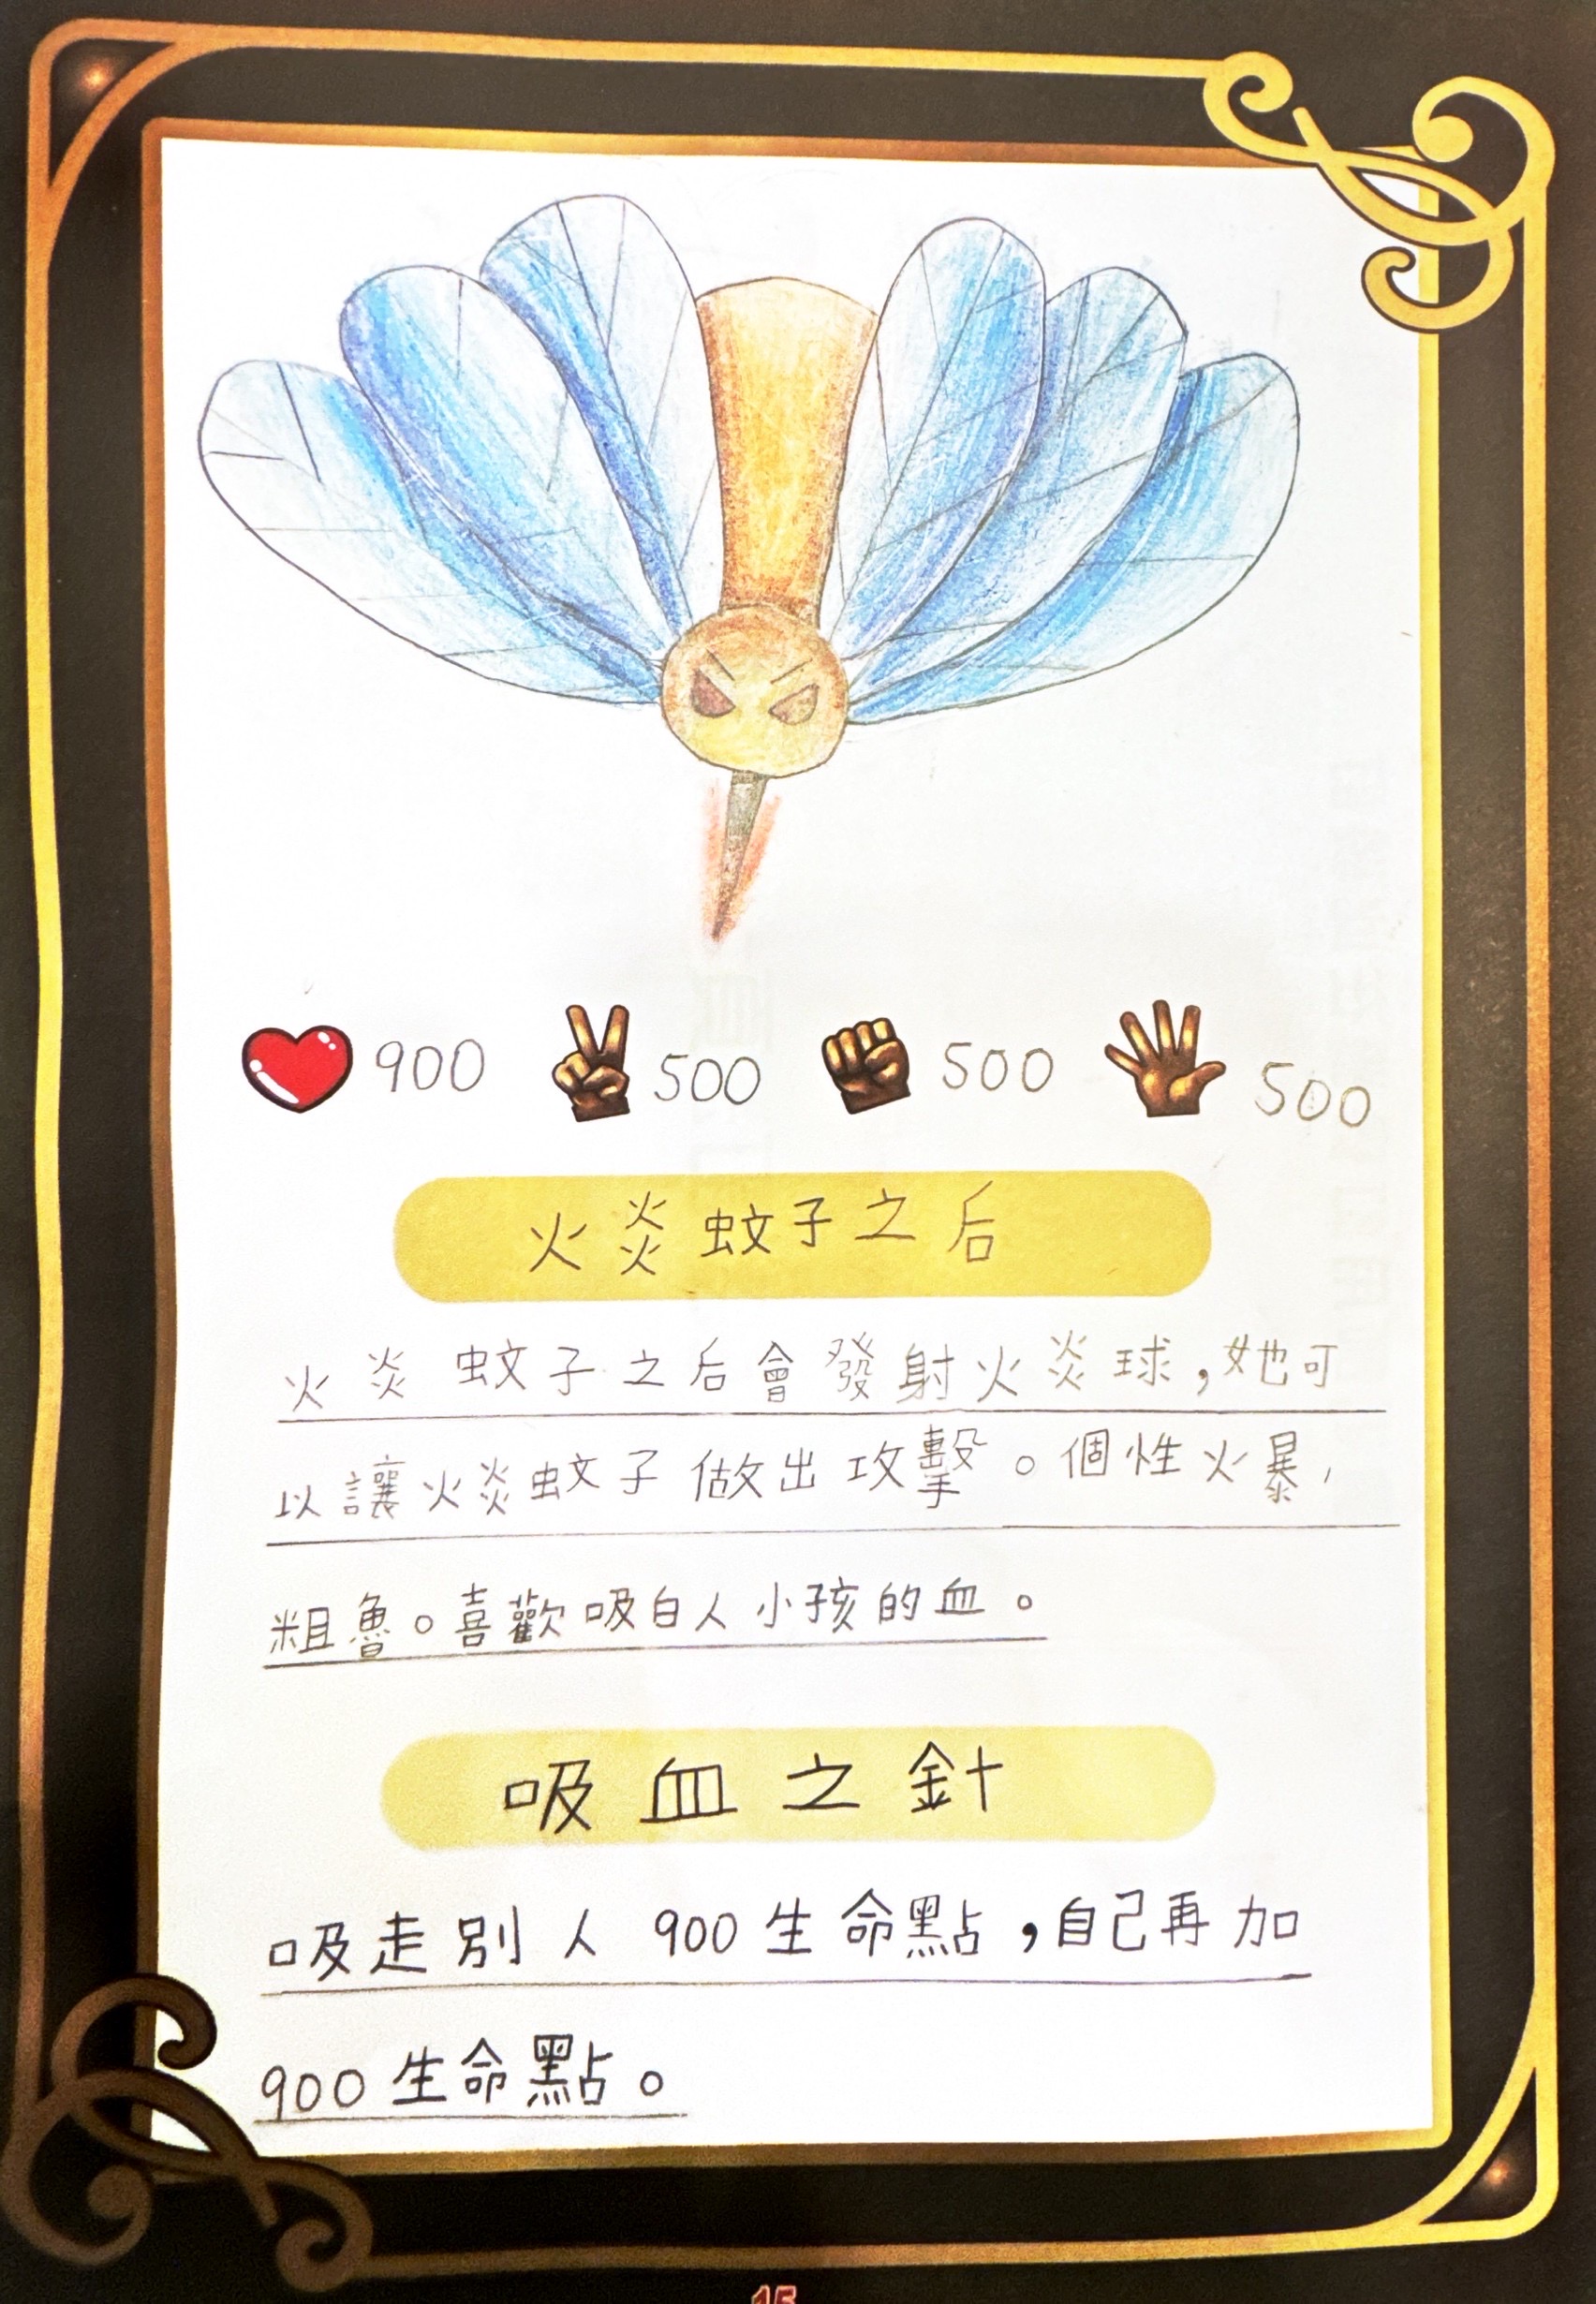 900 500 500 500
火炎蚊子之后
火炎蚊子之后會發射火炎球,她可
以讓火炎蚊子做出攻擊。個性火暴,
粗魯。喜歡吸白人小孩的血。
吸血之針
吸走別人900生命點,自己再加
900生命點。
15